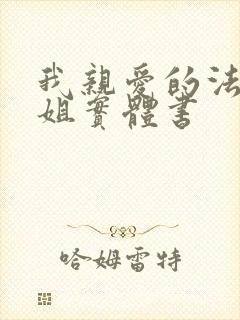 我親愛的法
姐實體書
哈姆雷特